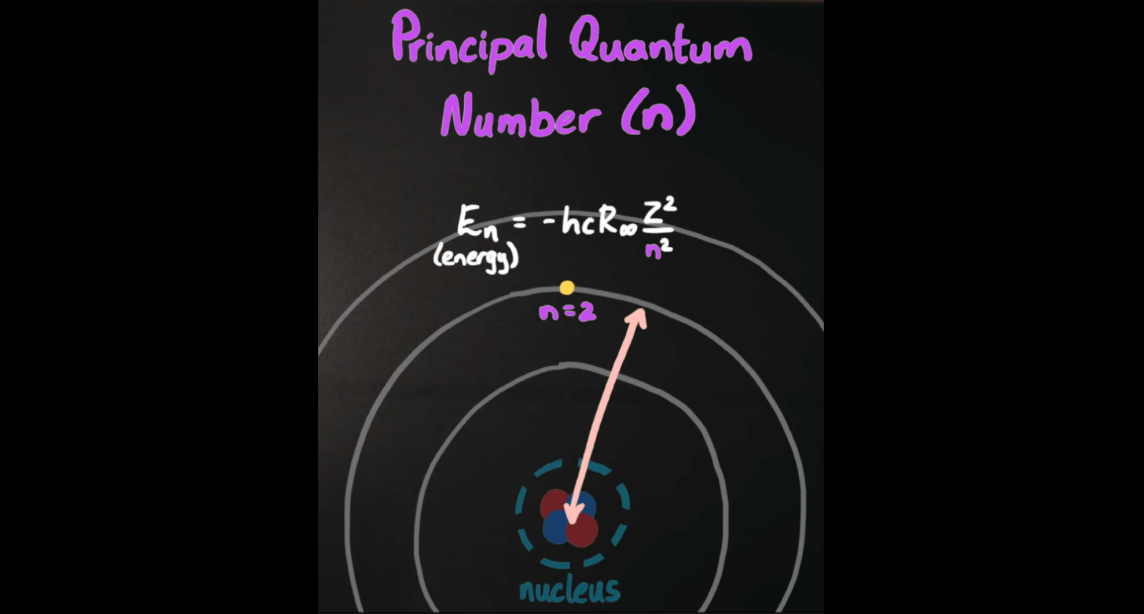 Principal Quantum
Number (n)
Eₙ = -hcR∞ Z²/n²
(energy)
n=2
nucleus